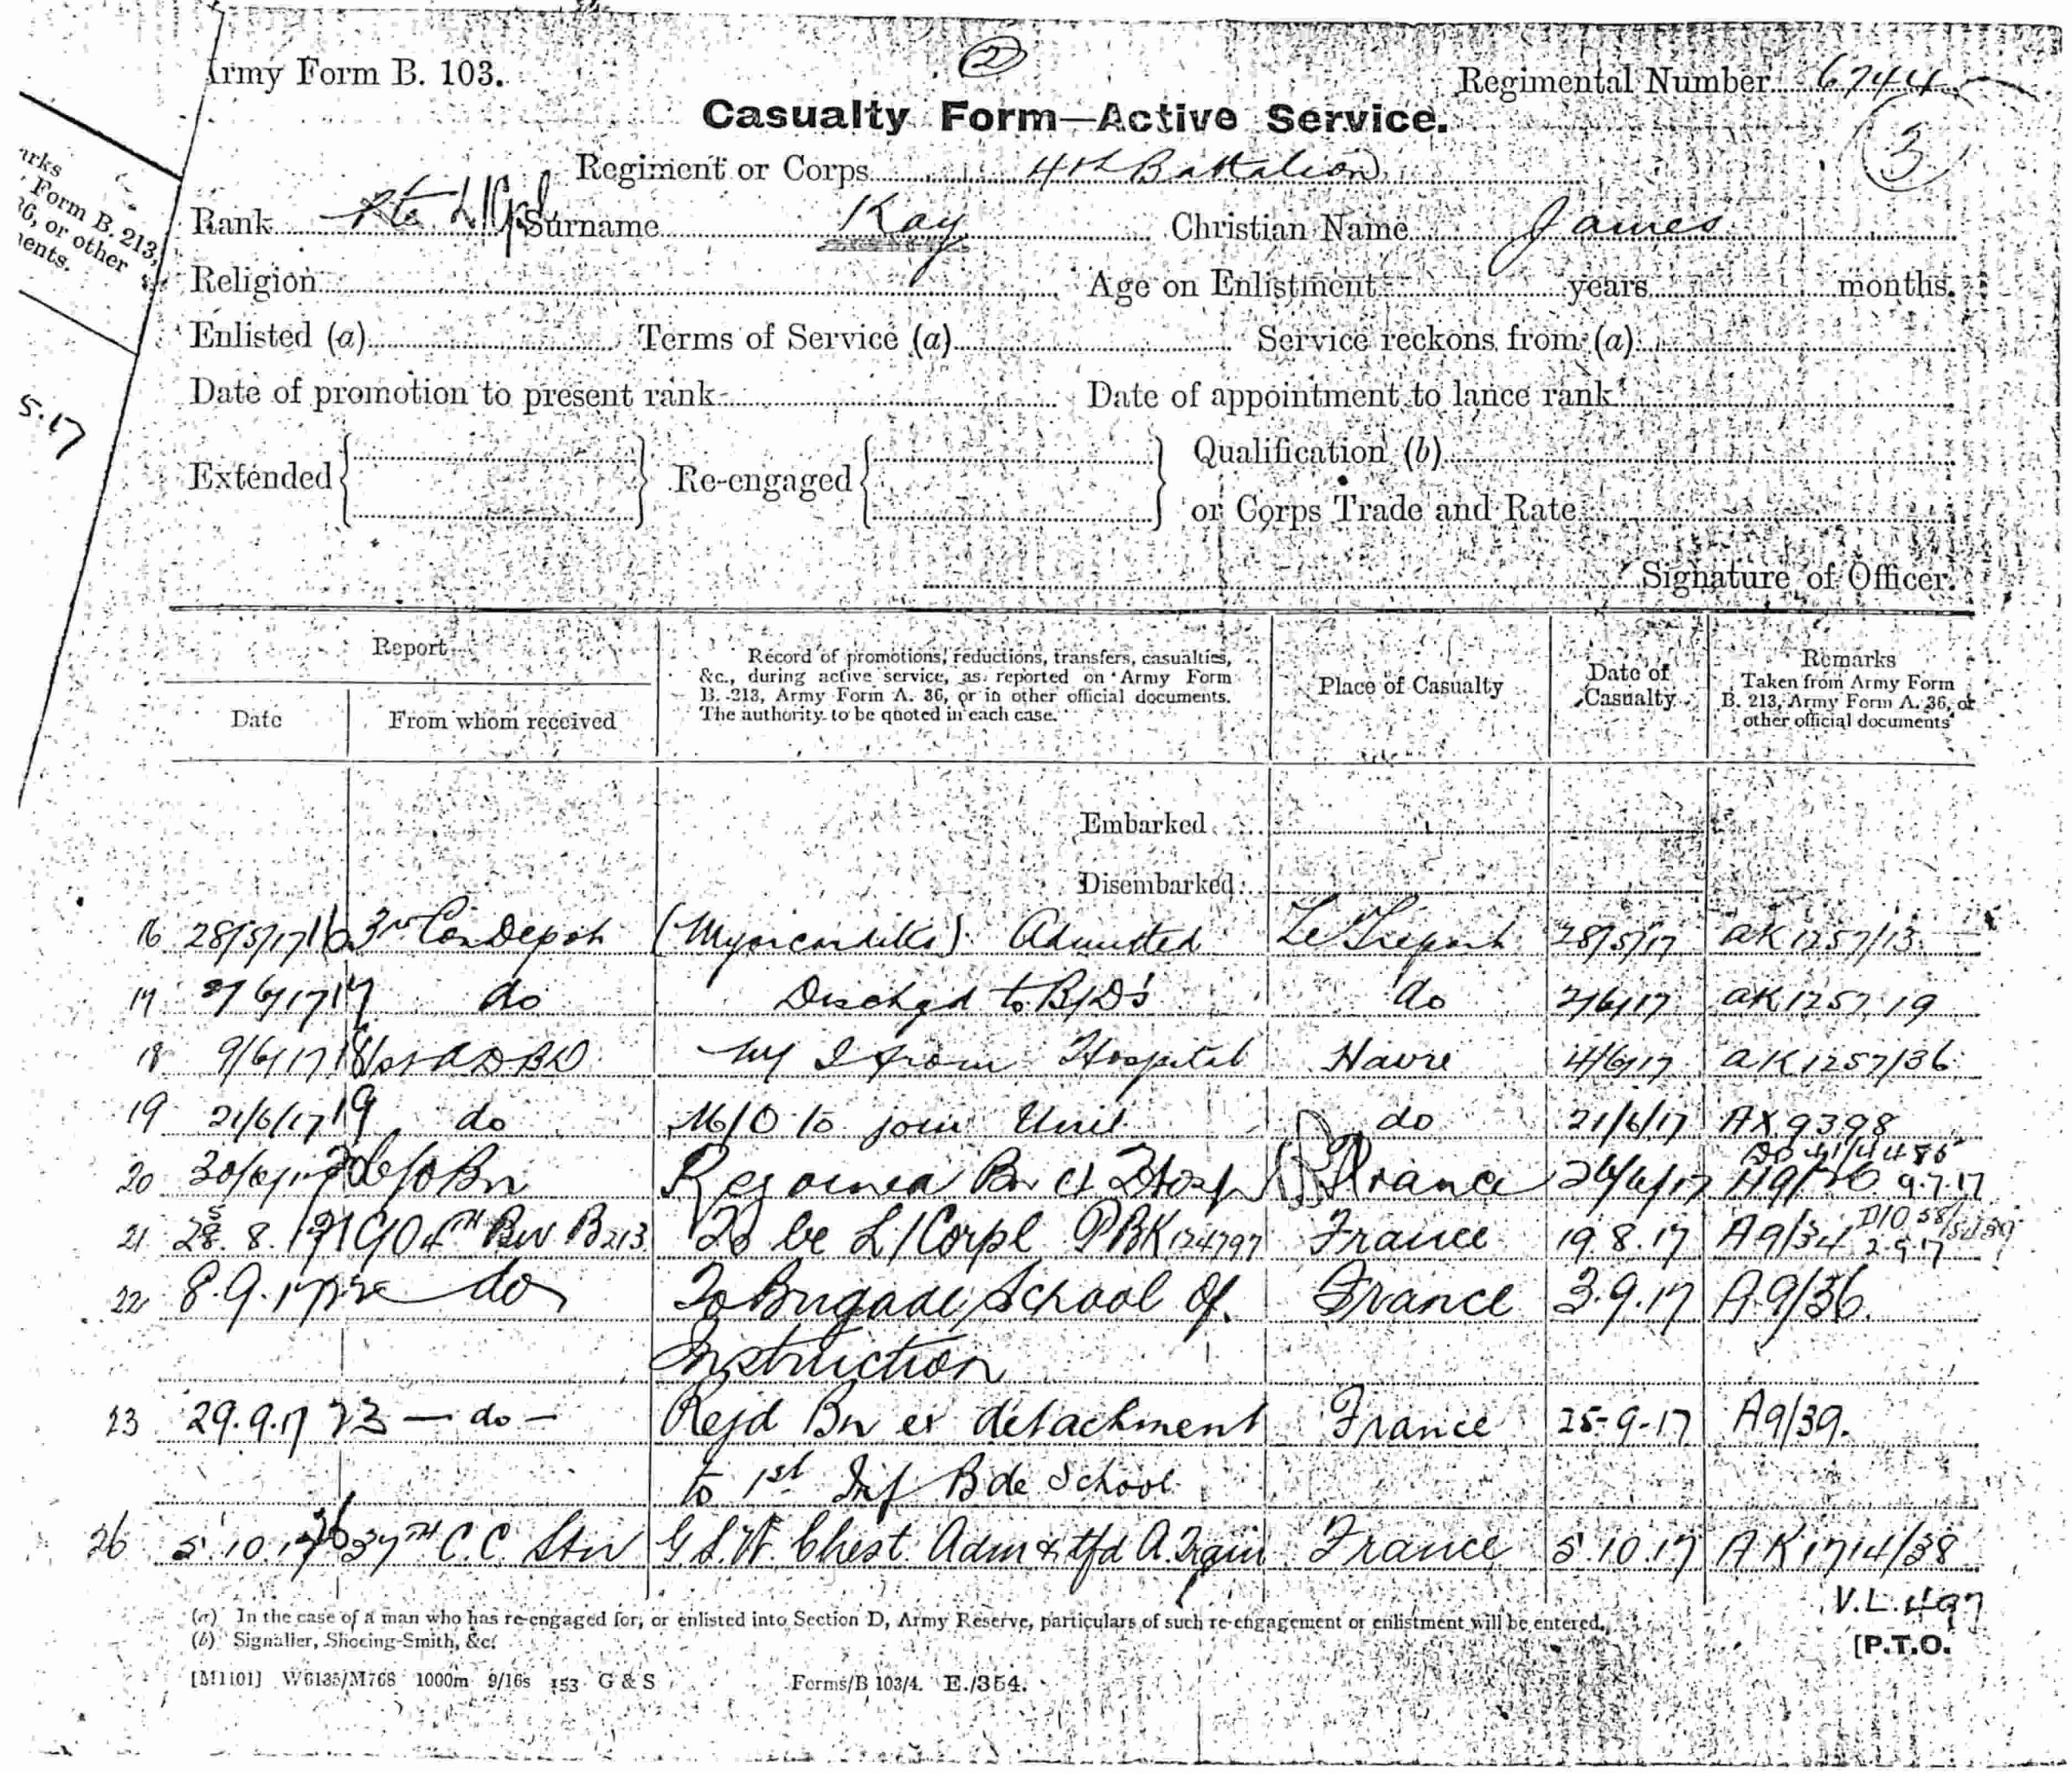 arks
Form B. 213,
36, or other
ments.
5.17
Army Form B. 103.
2
Regimental Number 6744
3
Casualty Form—Active Service.
Regiment or Corps 4th Battalion
Rank Pte L/Cpl Surname Kay Christian Name James
Religion Age on Enlistment years months.
Enlisted (a) Terms of Service (a) Service reckons from (a)
Date of promotion to present rank Date of appointment to lance rank
Extended Re-engaged Qualification (b)
or Corps Trade and Rate
Signature of Officer.
Report
Date From whom received
Record of promotions, reductions, transfers, casualties,
&c., during active service, as reported on Army Form
B. 213, Army Form A. 36, or in other official documents.
The authority to be quoted in each case.
Place of Casualty
Date of
Casualty
Remarks
Taken from Army Form
B. 213, Army Form A. 36, or
other official documents
Embarked
Disembarked
16 28/5/17 16 3rd Con Depot (Myocarditis) Admitted Le Treport 28/5/17 AK 1257/13
17 2/6/17 17 do Dischgd to B/D's do 2/6/17 AK 1257 19
18 9/6/17 18 1st A D B D from Hospital Havre 4/6/17 AK 1257/36
19 21/6/17 19 do M/O to join Unit do 21/6/17 AX 9398
20 30/6/17 20 Bn Rejoined Bn ex Hosp France 9.7.17
21 8.17 21 CO 4TH Bn B213 To be L/Corpl PBK 124797 France 19.8.17 A9/34 2.9.17
22 8.9.17 22 do To Brigade School of France 3.9.17 A9/36.
Instruction
23 29.9.17 23 — do — Rejd Bn ex detachment France 25-9-17 A9/39.
to 1st Inf Bde School
26 5.10.17 26 37TH C.C. Stn G.S.W. Chest Adm & tfd A. Train France 5.10.17 AK1714/38
V.L. 497
(a) In the case of a man who has re-engaged for, or enlisted into Section D, Army Reserve, particulars of such re-engagement or enlistment will be entered.
(b) Signaller, Shoeing-Smith, &c.
[P.T.O.
[M1101] W6135/M768 1000m 9/16s 153 G & S Forms/B 103/4. E./354.